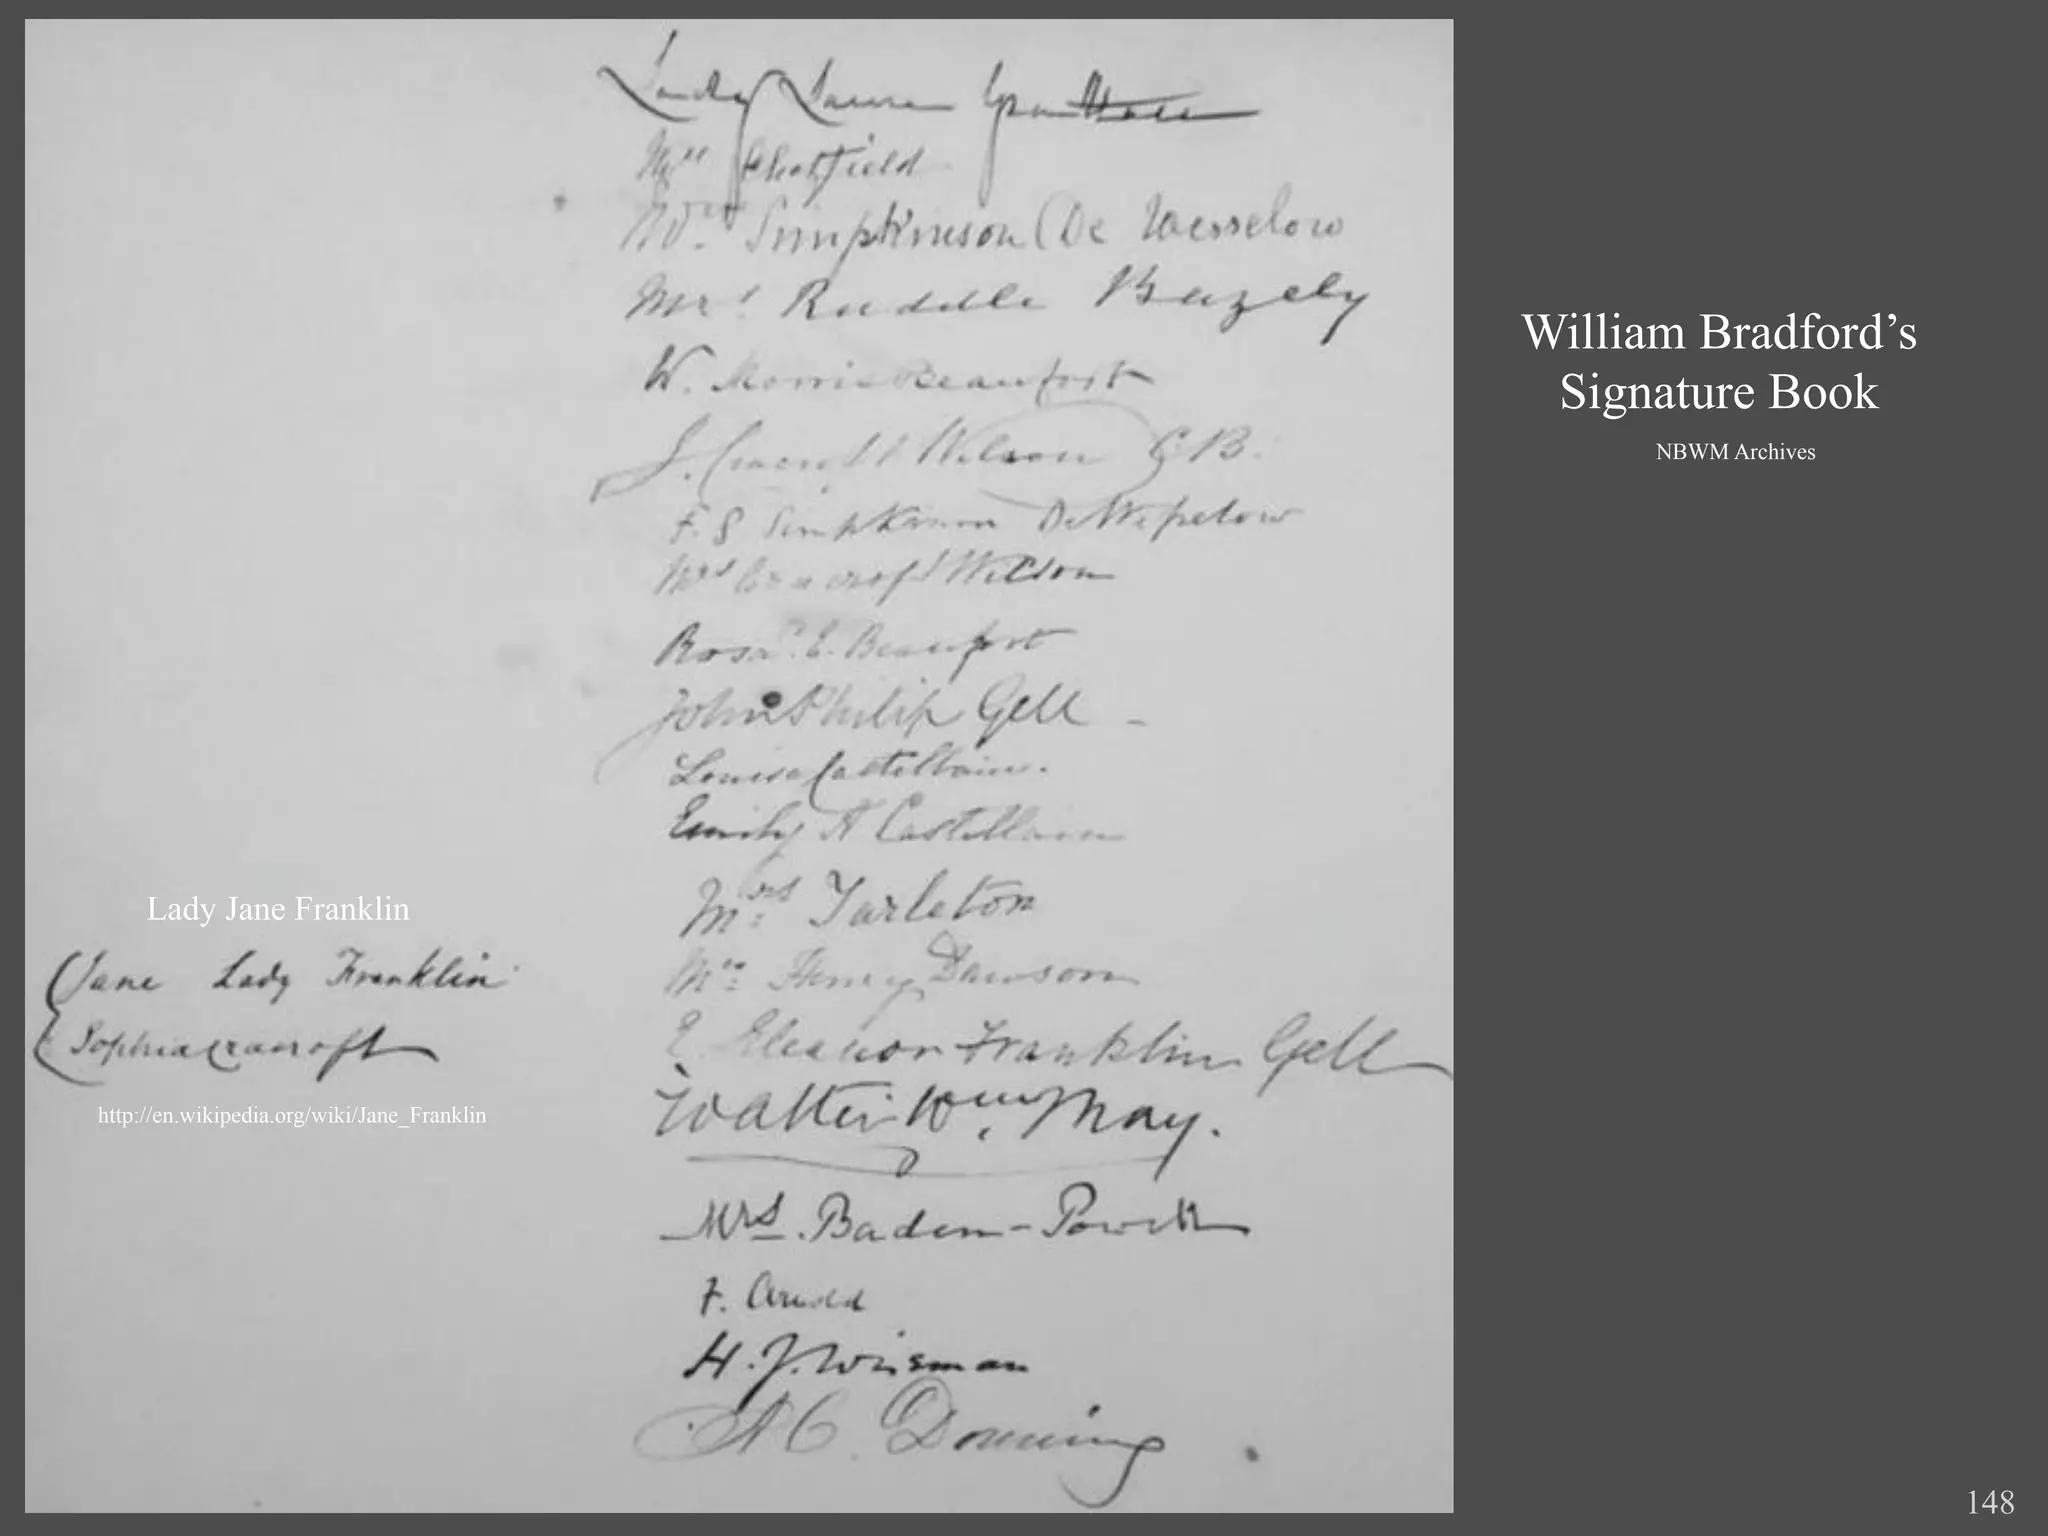 Lady Laura Grattan
Mrs Chatfield
Mrs Simpkinson (De Wesselow
Mrs Ruddle Bazely
W. Morris Beaufort
J. Cracroft Wilson C.B.
F. G. Simpkinson De Wesselow
Mrs Cracroft Wilson
Rosa. E. Beaufort
John Philip Gell
Louisa Castellain.
Emily A Castellain
Mrs: Tarleton
Mrs: Henry Dawson
E. Eleanor Franklin Gell
Walter Wm. May.
Mrs. Baden-Powell
F. Arnold
H. J. Wisman
A C Downing
Lady Jane Franklin
Jane Lady Franklin
Sophia Cracroft
http://en.wikipedia.org/wiki/Jane_Franklin
William Bradford’s
Signature Book
NBWM Archives
148